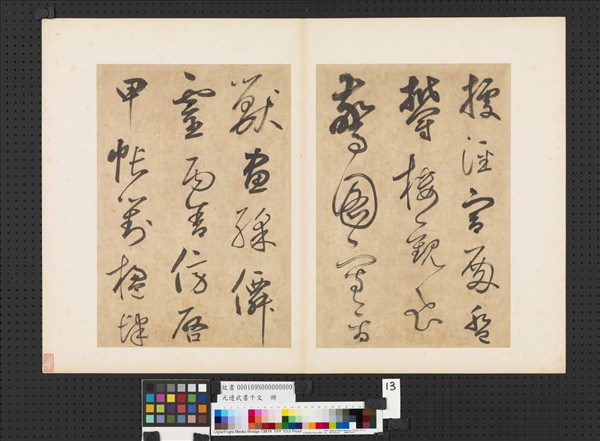 據涇宮殿盤
鬱樓觀飛
驚圖寫禽
獸畫綵僊
靈丙舍傍啓
甲帳對楹肆
故書 000169N000000000
元邊武書千文 冊
13